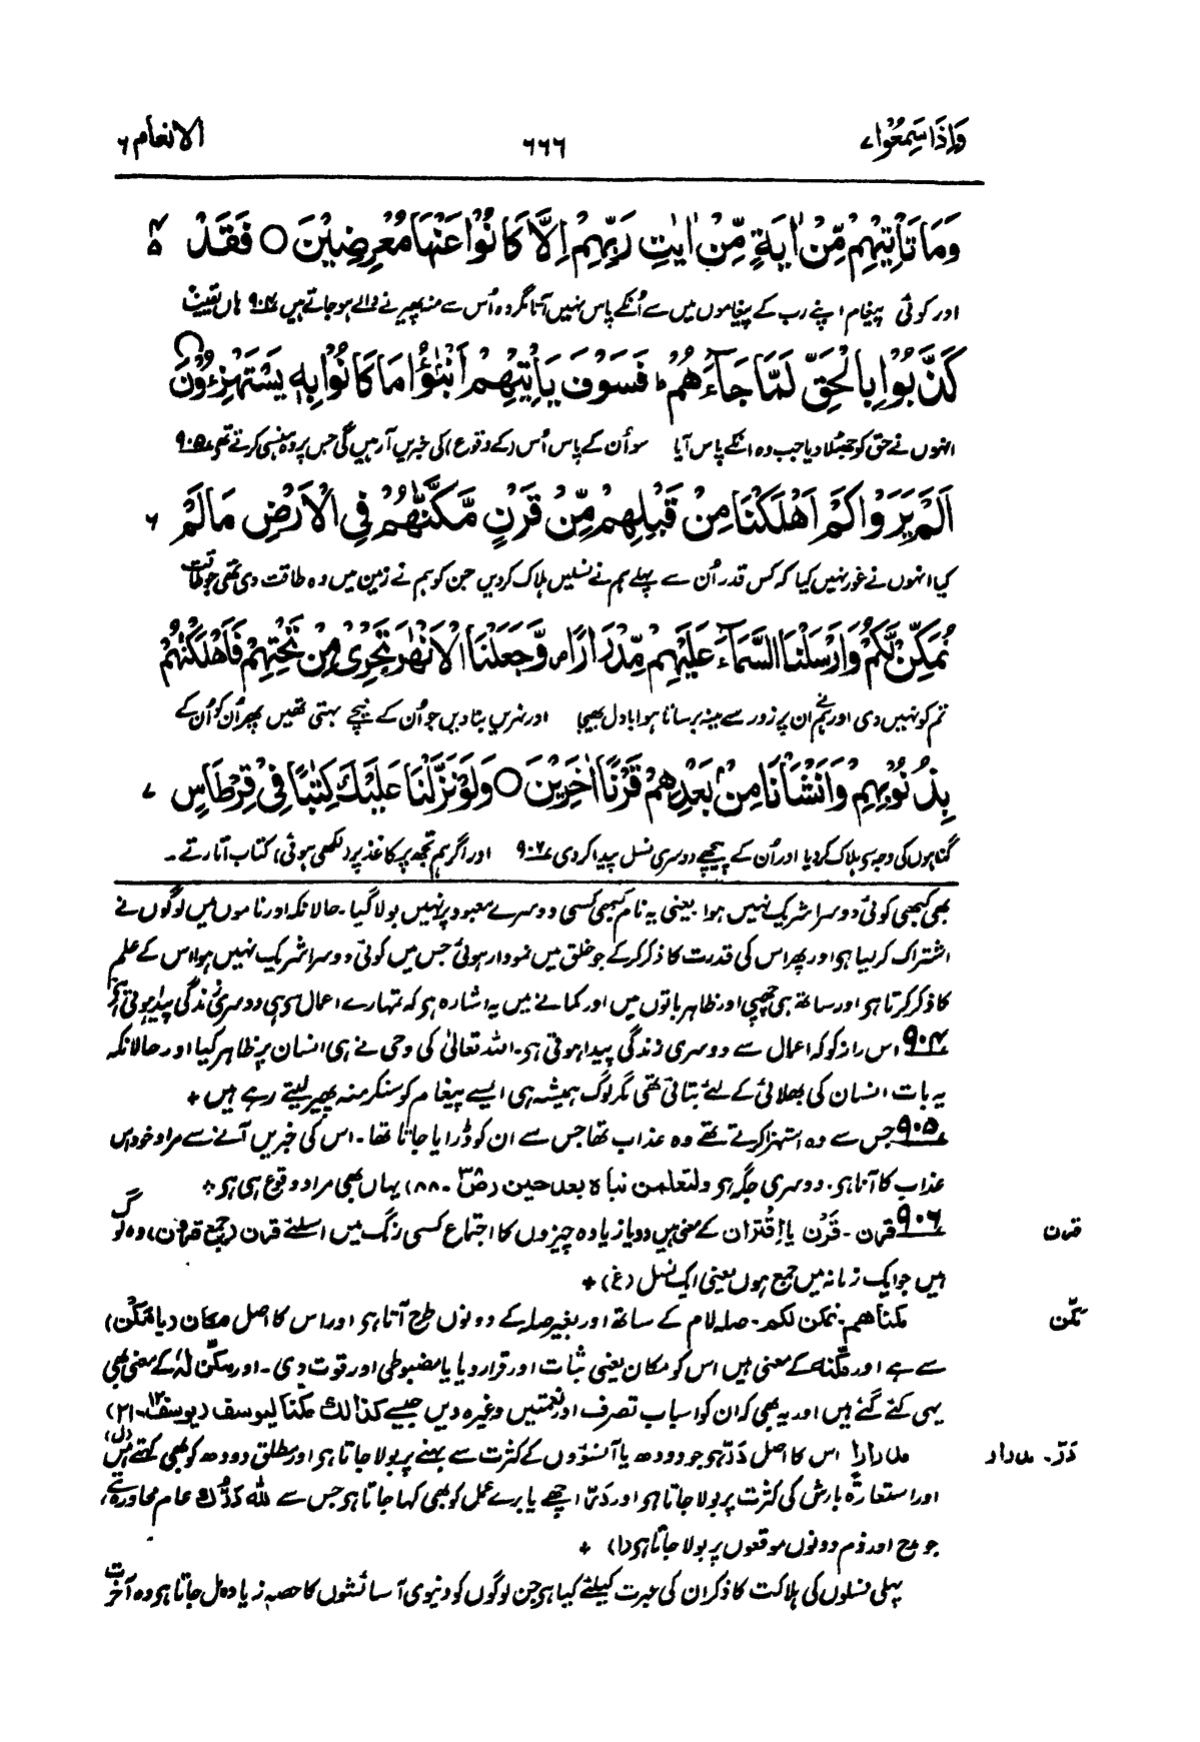 وَاِذَا سَمِعُوْا ۷ ۶۶۶ الانعام ۶
وَمَا تَاْتِيْهِمْ مِّنْ اٰيَةٍ مِّنْ اٰيٰتِ رَبِّهِمْ اِلَّا كَانُوْا عَنْهَا مُعْرِضِيْنَ ○ فَقَدْ ۴ ۵
اور کوئی پیغام اپنے رب کے پیغاموں میں سے اُنکے پاس نہیں آتا مگر وہ اُس سے منہ پھیرنے والے ہو جاتے ہیں ۹۰۴ ہاں یقیناً
كَذَّبُوْا بِالْحَقِّ لَمَّا جَآءَهُمْ ؕ فَسَوْفَ يَاْتِيْهِمْ اَنْۢبٰٓؤُا مَا كَانُوْا بِهٖ يَسْتَهْزِءُوْنَ ○
انہوں نے حق کو جھٹلا دیا جب وہ انکے پاس آیا سو اُن کے پاس اُس (کے وقوع) کی خبریں آرہیں گی جس پر وہ ہنسی کرتے تھے ۹۰۵
اَلَمْ يَرَوْا كَمْ اَهْلَكْنَا مِنْ قَبْلِهِمْ مِّنْ قَرْنٍ مَّكَّنّٰهُمْ فِي الْاَرْضِ مَا لَمْ ۶
کیا انہوں نے غور نہیں کیا کہ کس قدر اُن سے پہلے ہم نے نسلیں ہلاک کر دیں جن کو ہم نے زمین میں وہ طاقت دی تھی جو طاقت
نُمَكِّنْ لَّكُمْ وَاَرْسَلْنَا السَّمَآءَ عَلَيْهِمْ مِّدْرَارًا ۪ وَّجَعَلْنَا الْاَنْهٰرَ تَجْرِيْ مِنْ تَحْتِهِمْ فَاَهْلَكْنٰهُمْ
تم کو نہیں دی اور ہم نے ان پر زور سے مینہ برساتا ہوا بادل بھیجا اور نہریں بنا دیں جو اُن کے نیچے بہتی تھیں پھر اُن کو اُن کے
بِذُنُوْبِهِمْ وَاَنْشَاْنَا مِنْۢ بَعْدِهِمْ قَرْنًا اٰخَرِيْنَ ○ وَلَوْ نَزَّلْنَا عَلَيْكَ كِتٰبًا فِيْ قِرْطَاسٍ ۷
گناہوں کی وجہ سے ہلاک کر دیا اور اُن کے پیچھے دوسری نسل پیدا کر دی ۹۰۶ اور اگر ہم تجھ پر کاغذ پر (لکھی ہوئی) کتاب اُتارتے۔
بھی کبھی کوئی دوسرا شریک نہیں ہوا۔ یعنی یہ نام کبھی کسی دوسرے معبود پر نہیں بولا گیا۔ حالانکہ اور ناموں میں لوگوں نے
اشتراک کر لیا ہی اور پھر اس کی قدرت کا ذکر کرکے جو خلق میں نمودار ہوئی جس میں کوئی دوسرا شریک نہیں ہوا اس کے علم
کا ذکر کرتا ہی اور ساتھ ہی چھپی اور ظاہر باتوں میں اور کمانے میں یہ اشارہ ہی کہ تمہارے اعمال سے ہی دوسری زندگی پیدا ہوتی ہی
۹۰۴ اس راز کو کہ اعمال سے دوسری زندگی پیدا ہوتی ہی۔ اللہ تعالیٰ کی وحی نے ہی انسان پر ظاہر کیا اور حالانکہ
یہ بات انسان کی بھلائی کے لئے بتائی تھی مگر لوگ ہمیشہ ہی ایسے پیغام کو سنکر منہ پھیر لیتے رہے ہیں +
۹۰۵ جس سے وہ استہزا کرتے تھے وہ عذاب تھا جس سے ان کو ڈرایا جاتا تھا۔ اس کی خبریں آنے سے مراد خود اس
عذاب کا آنا ہی۔ دوسری جگہ ہی ولتعلمن نباہ بعد حین (صٓ ۳۸۔۸۸) یہاں بھی مراد وقوع ہی ہی +
قرن ۹۰۶ قرن۔ قَرْن یا اِقْتِران کے معنی ہیں دو یا زیادہ چیزوں کا اجتماع کسی رنگ میں اسلئے قرن (جمع قرون) وہ لوگ
ہیں جو ایک زمانہ میں جمع ہوں یعنی ایک نسل (غ) +
مکّن مکناھم۔ نمکن لکم۔ صلہ لام کے ساتھ اور بغیر صلہ کے دونوں طرح آتا ہی اور اس کا اصل مکان (یا مَکُن)
سے ہے اور مَکَّنَہٗ کے معنی ہیں اس کو مکان یعنی ثبات اور قرار دیا یا مضبوطی اور قوت دی۔ اور مکّن لہٗ کے معنی بھی
یہی کئے گئے ہیں اور یہ بھی کہ ان کو اسباب تصرف اور نعمتیں وغیرہ دیں جیسے کذالک مکنا لیوسف (یوسف ۱۲۔۲۱)
دَرّ۔ مدرار مدرارا اس کا اصل دَرّ ہی جو دودھ یا آنسوؤں کے کثرت سے بہنے پر بولا جاتا ہی اور مطلق دودھ کو بھی کہتے ہیں (ل)
اور استعارۃً بارش کی کثرت پر بولا جاتا ہی اور دَرّ اچھے یا برے عمل کو بھی کہا جاتا ہی جس سے للہ دَرُّک عام محاورہ ہے،
جو مدح اور ذم دونوں موقعوں پر بولا جاتا ہی (ل) +
پہلی نسلوں کی ہلاکت کا ذکر ان کی عبرت کیلئے کیا ہی جن لوگوں کو دنیوی آسائشوں کا حصہ زیادہ مل جاتا ہی وہ آخرت